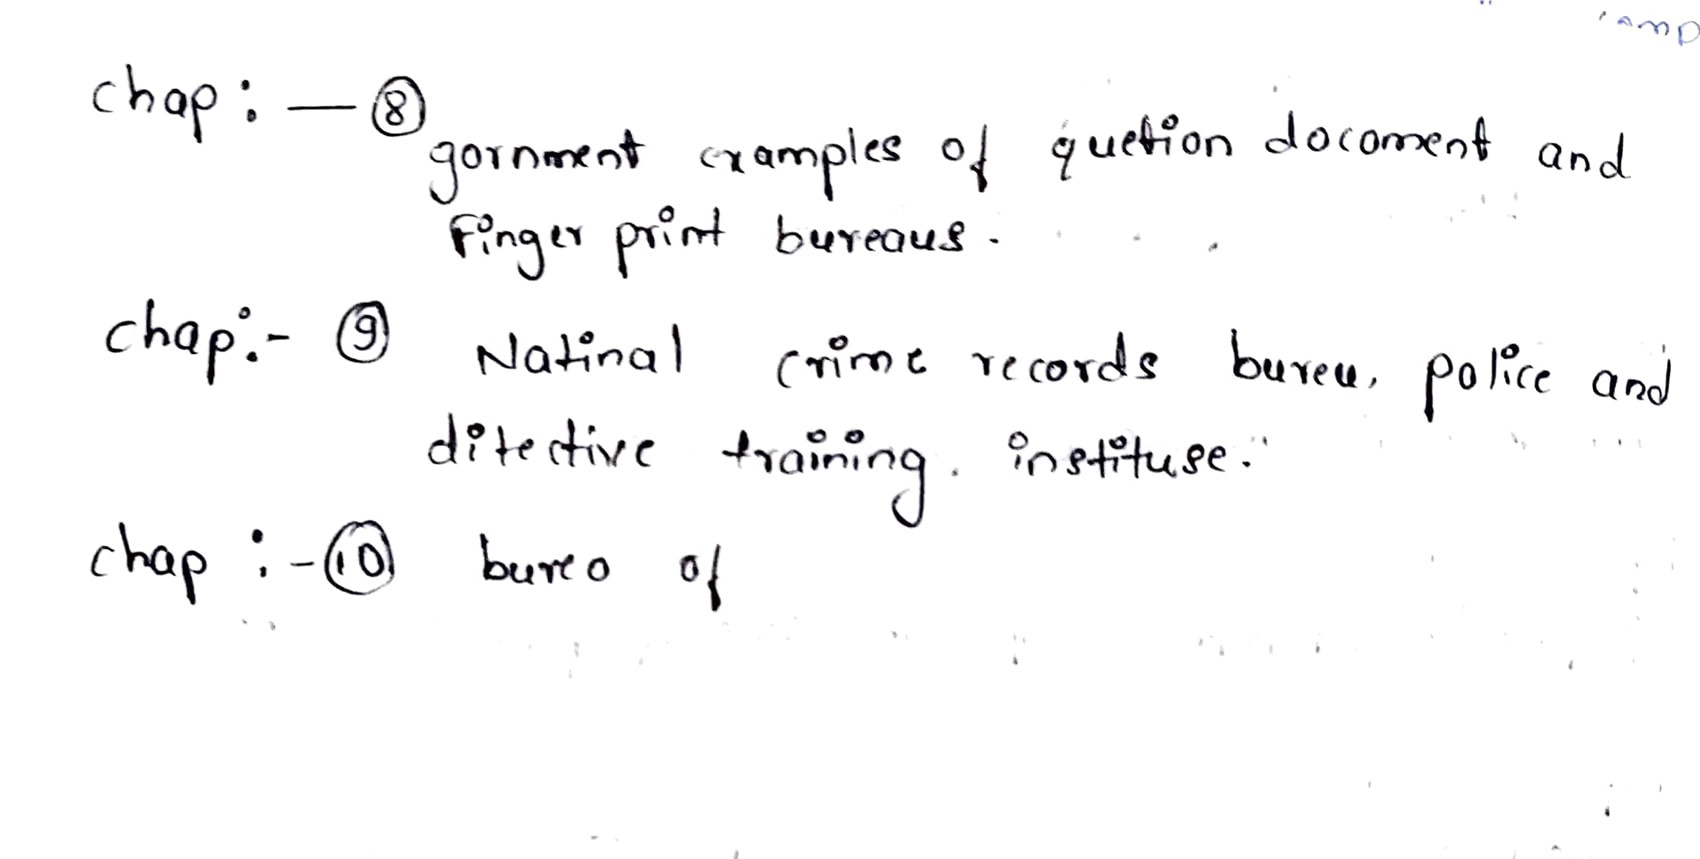 amp
chap : — 8
gornment examples of quetion docoment and
Finger print bureaus.
chap :- 9 Natinal crime records bureu, police and
ditective training. instituse."
chap :- 10 bureo of